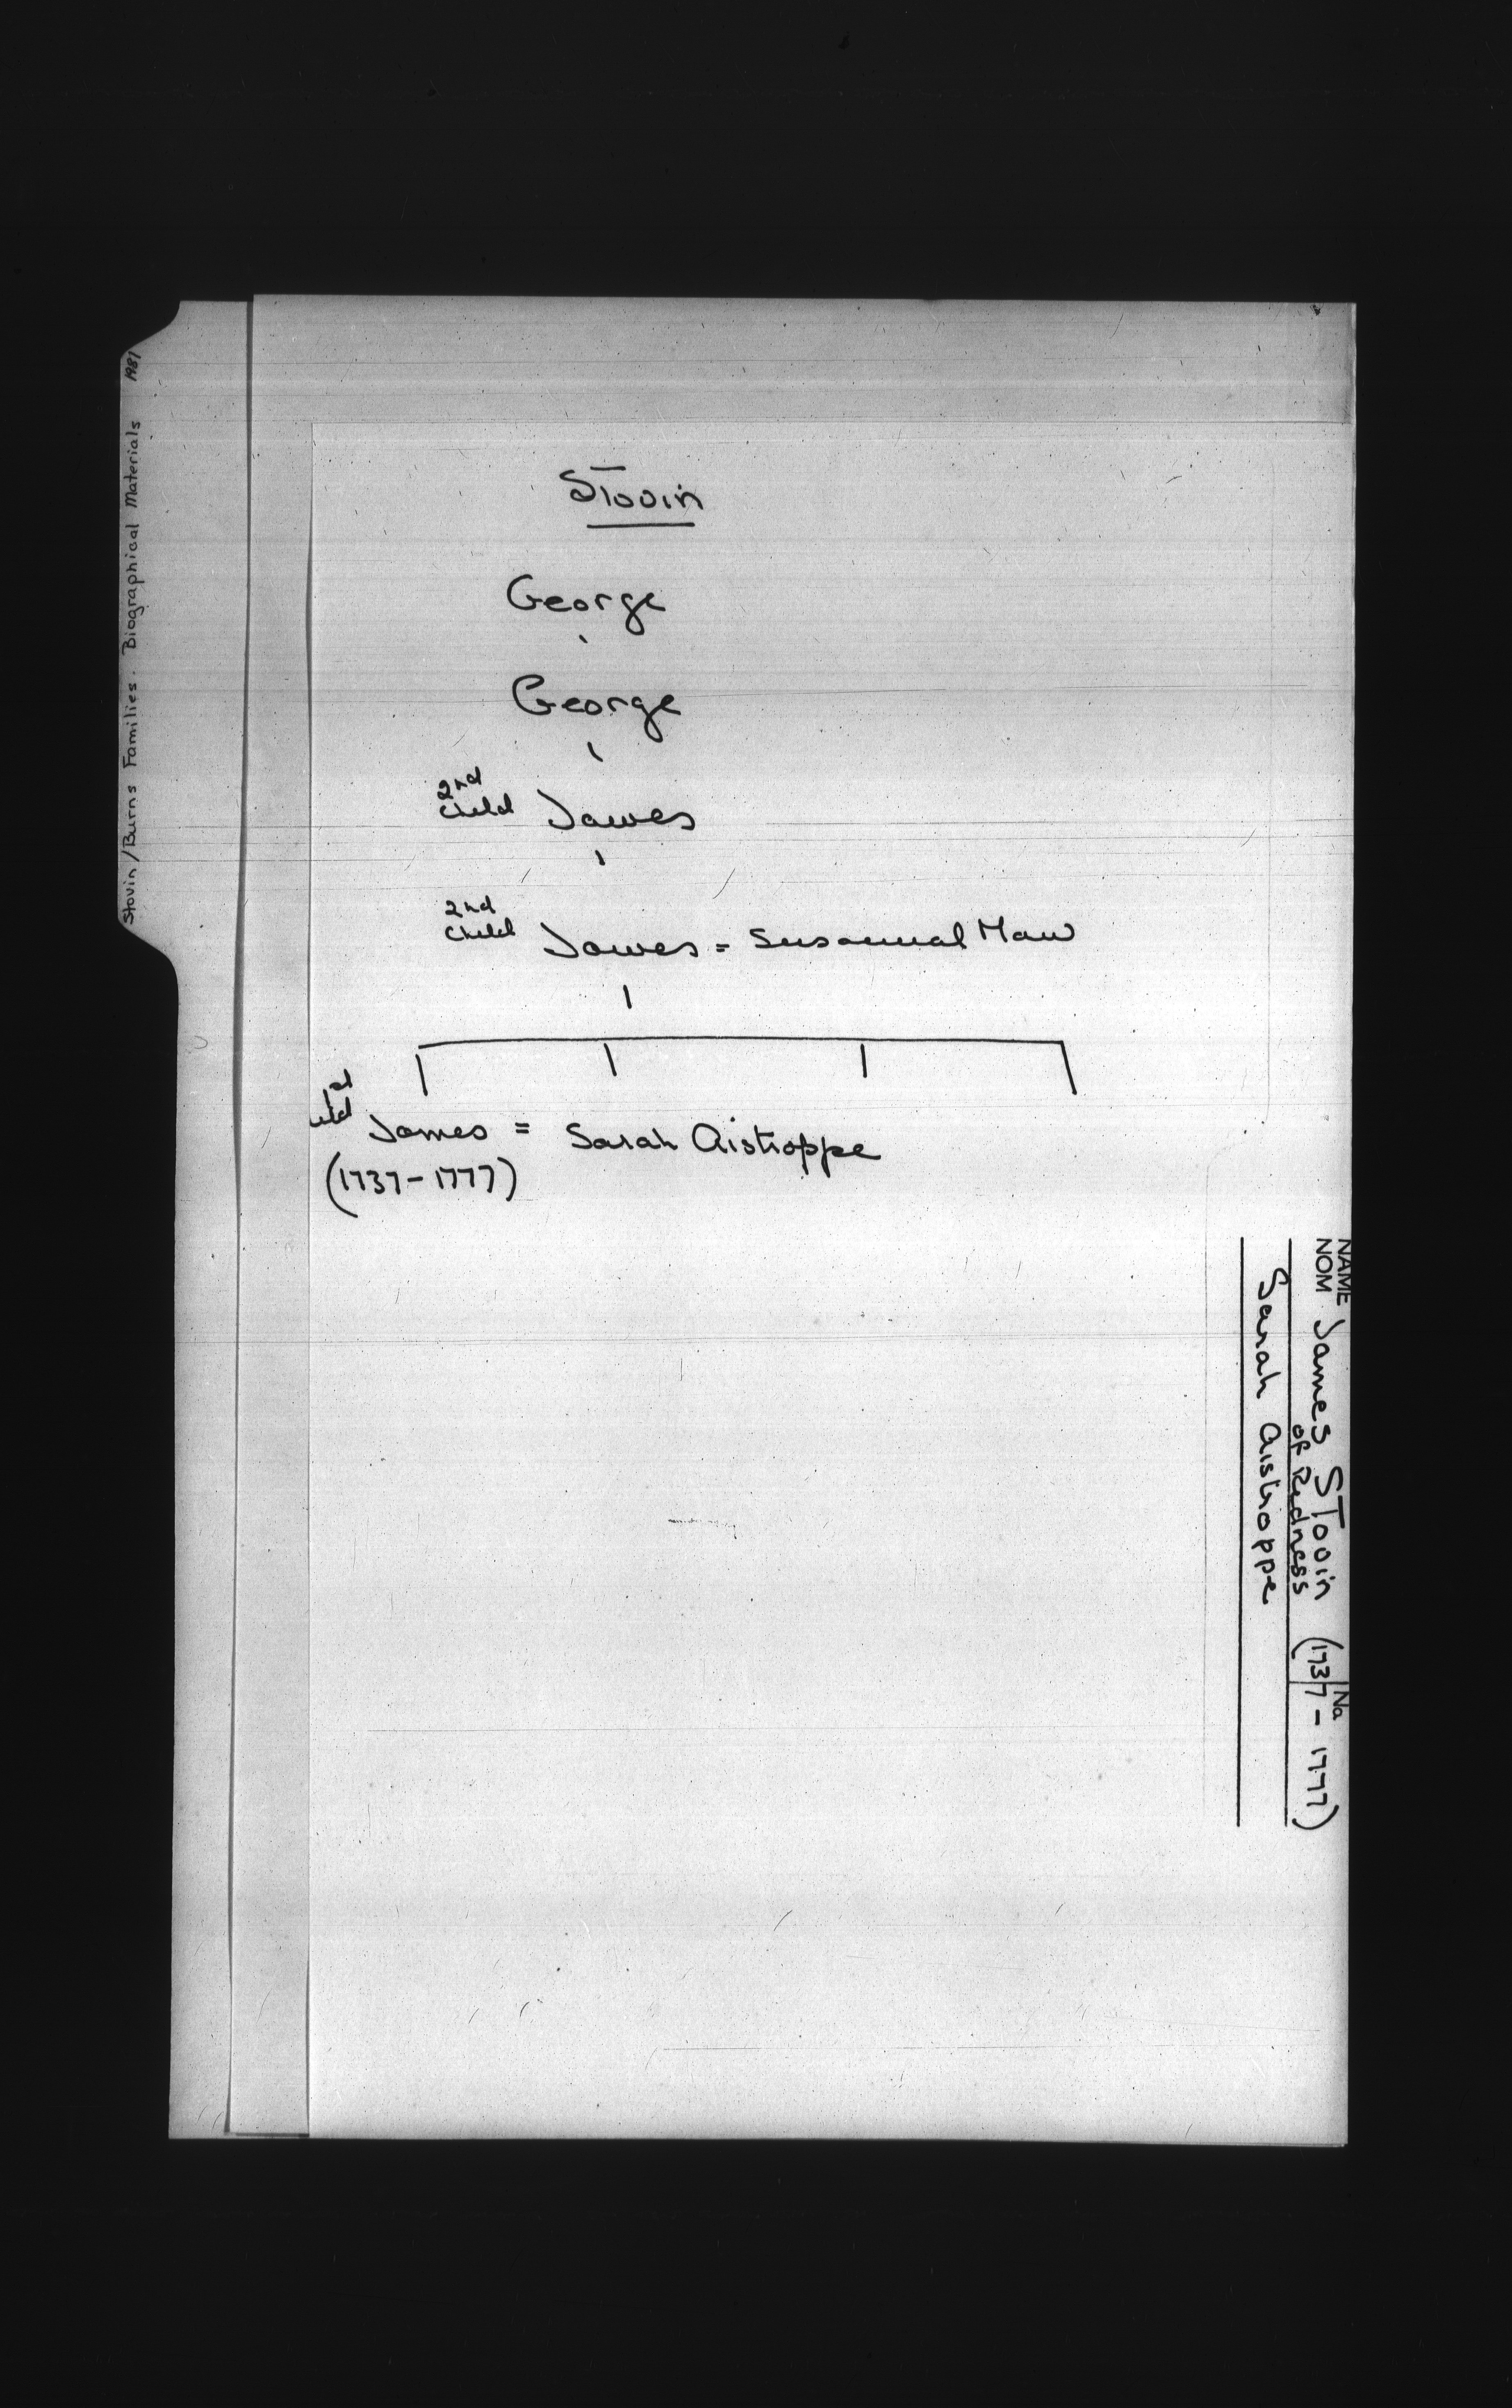 Stovin/Burns Families. Biographical Materials 1981
Stovin
George
George
2nd
child James
2nd
child James = Susannah Maw
James = Sarah Aistroppe
(1737-1777)
NAME
NOM James Stovin (1737 - 1777)
of Redness
Sarah Aistroppe
No